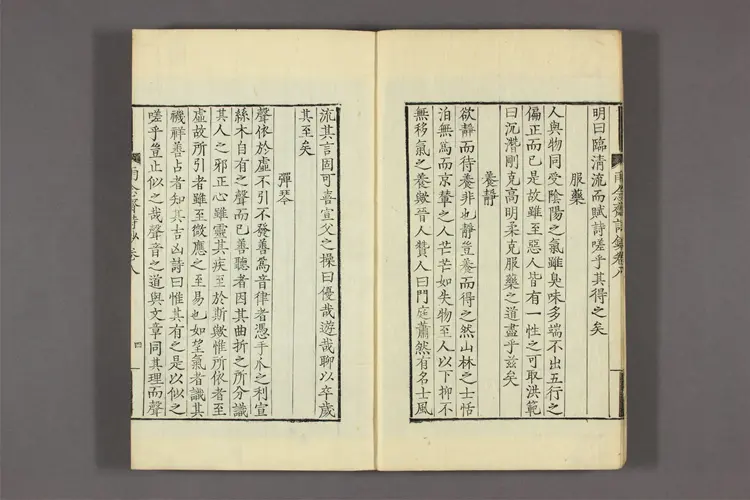 明曰臨清流而賦詩嗟乎其得之矣
服藥
人與物同受陰陽之氣雖臭味多端不出五行之
偏正而已是故雖至惡人皆有一性之可取洪範
曰沉潛剛克高明柔克服藥之道盡乎茲矣
養靜
欲靜而待養非也靜豈養而得之然山林之士恬
泊無為而京輦之人芒芒如失物至人以下抑不
無移氣之養歟晉人贊人曰門庭蕭然有名士風
流其言固可喜宣父之操曰優哉遊哉聊以卒歲
其至矣
彈琴
聲依於虛不引不發善為音律者憑手爪之利宣
絲木自有之聲而已善聽者因其曲折之所分識
其人之邪正心雖靈其疾至於斯歟惟所依者至
虛故所引者雖至微應之至易也如望氣者識其
禨祥善占者知其吉凶詩曰惟其有之是以似之
嗟乎豈止似之哉聲音之道與文章同其理而聲
卷八
四